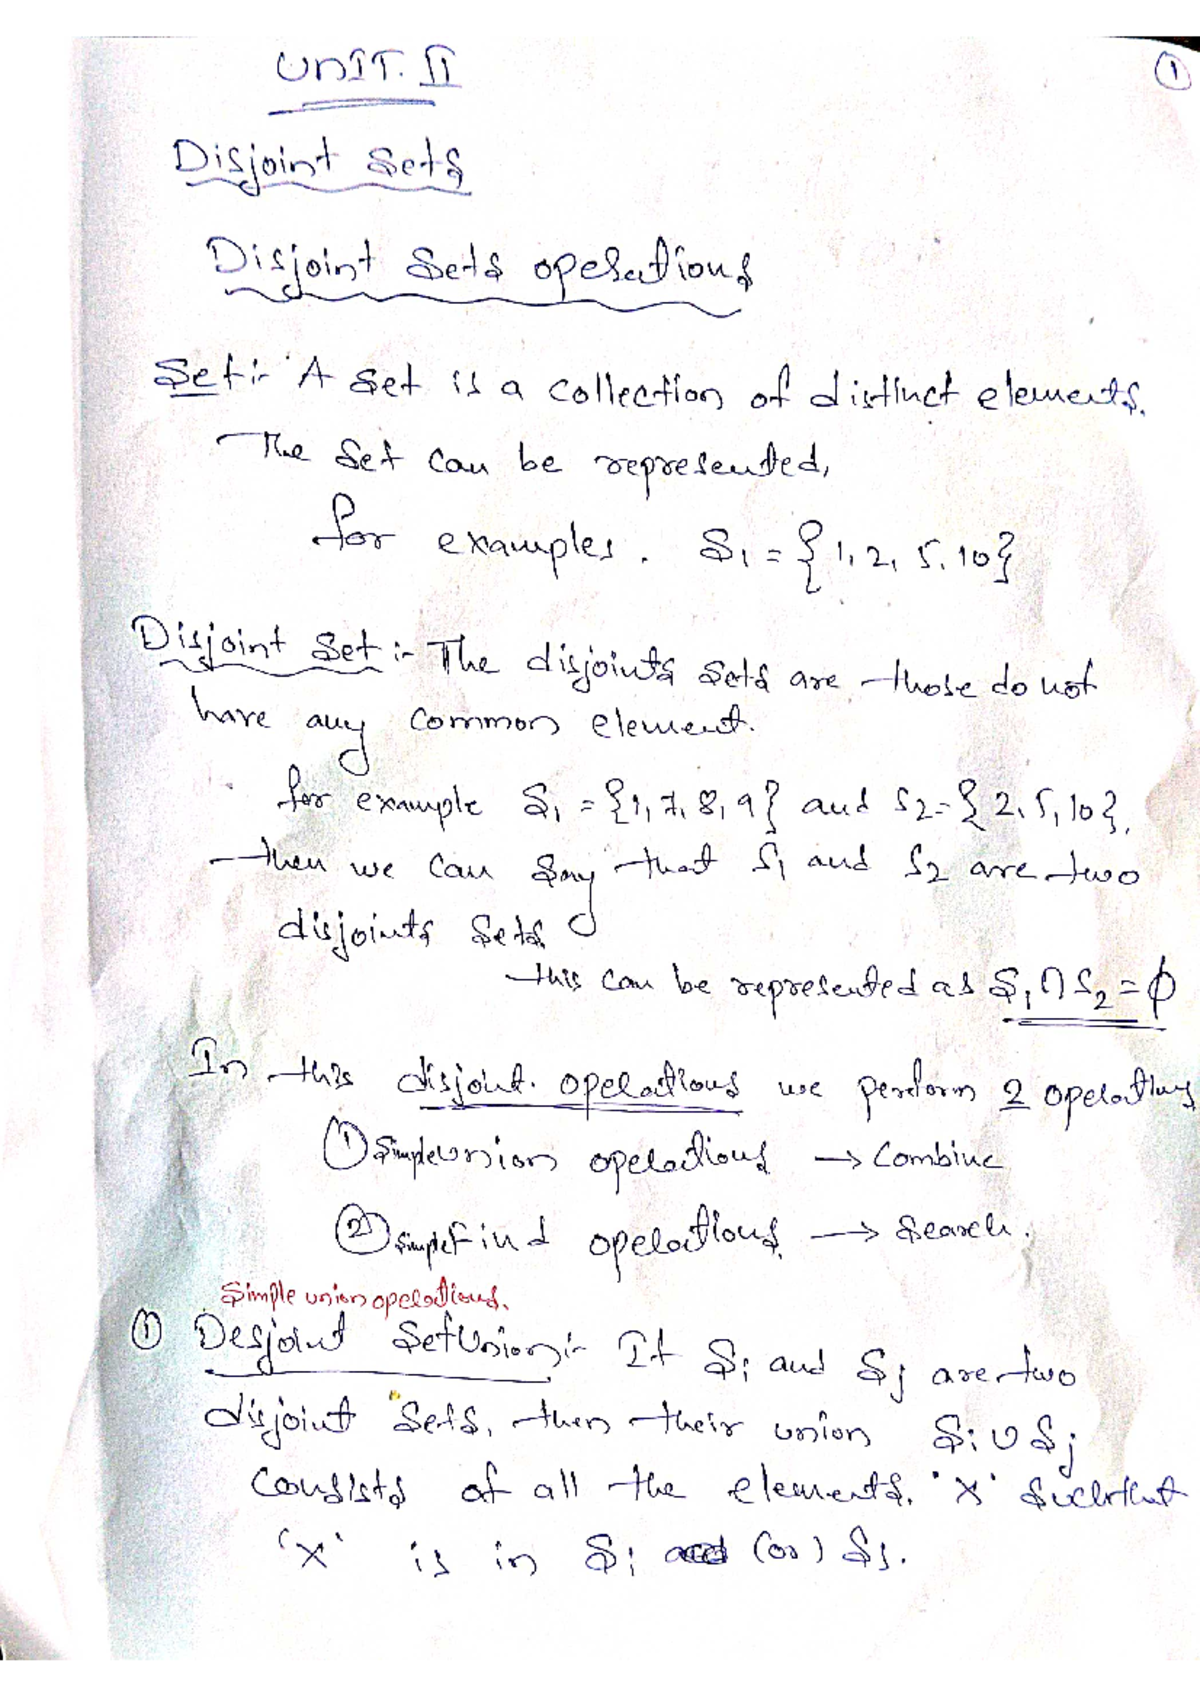 UNIT. II
1
Disjoint Sets
Disjoint Sets operations
Set:- A set is a collection of distinct elements.
The set can be represented,
for examples. S1 = {1, 2, 5, 10}
Disjoint Set:- The disjoints sets are those do not
have any common element.
for example S1 = {1, 7, 8, 9} and S2 = {2, 5, 10}.
then we can say that S1 and S2 are two
disjoints sets.
this can be represented as S1 ∩ S2 = ϕ
In this disjoint. operations we perform 2 operations
① Simple union operations → Combine
② Simple Find operations. → Search.
Simple union operations.
① Desjoint Set Union:- If Si and Sj are two
disjoint sets, then their union Si ∪ Sj
consists of all the elements. 'x' such that
'x' is in Si (or) Sj.